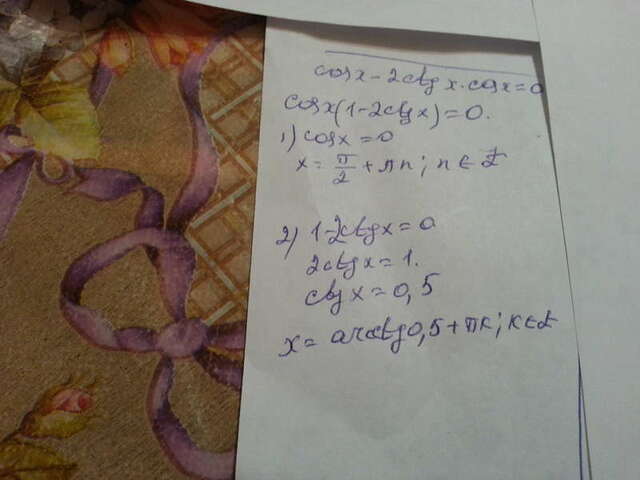 cosx - 2ctg x · cosx = 0
cosx(1 - 2ctgx) = 0.
1) cosx = 0
x = π/2 + πn; n ∈ Z
2) 1 - 2ctgx = 0
2ctgx = 1.
ctgx = 0,5
x = arcctg0,5 + πk; k ∈ Z